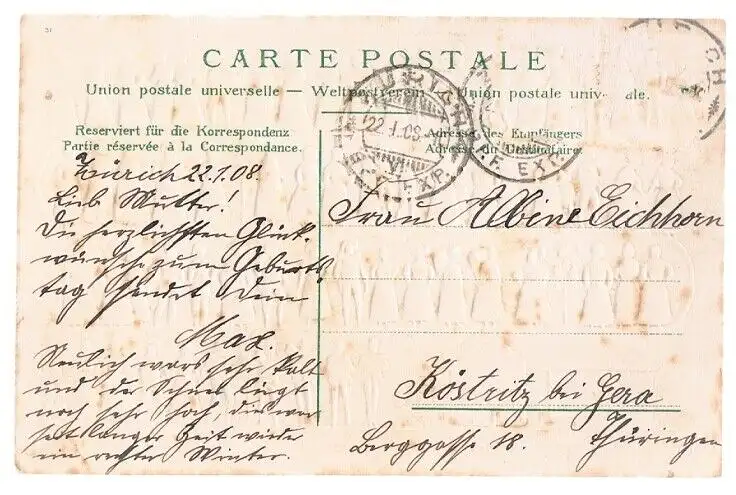 31
CARTE POSTALE
Union postale universelle — Weltpostverein — Union postale univ. ale.
Reserviert für die Korrespondenz
Partie réservée à la Correspondance.
Adresse des Empfängers
Adresse du Destinataire
22.I.08
EXP.
F. EXP.
CH
Zürich 22.1.08.
Lieb Mutter!
Die herzlichsten Glück-
wünsche zum Geburts-
tag sendet Dein
Max.
Neulich wars sehr kalt
und der Schnee liegt
noch sehr hoch, dies war
seit langer Zeit wieder
ein rechter Winter.
Frau Albine Eichhorn
Köstritz bei Gera
Berggasse 18. Thüringen